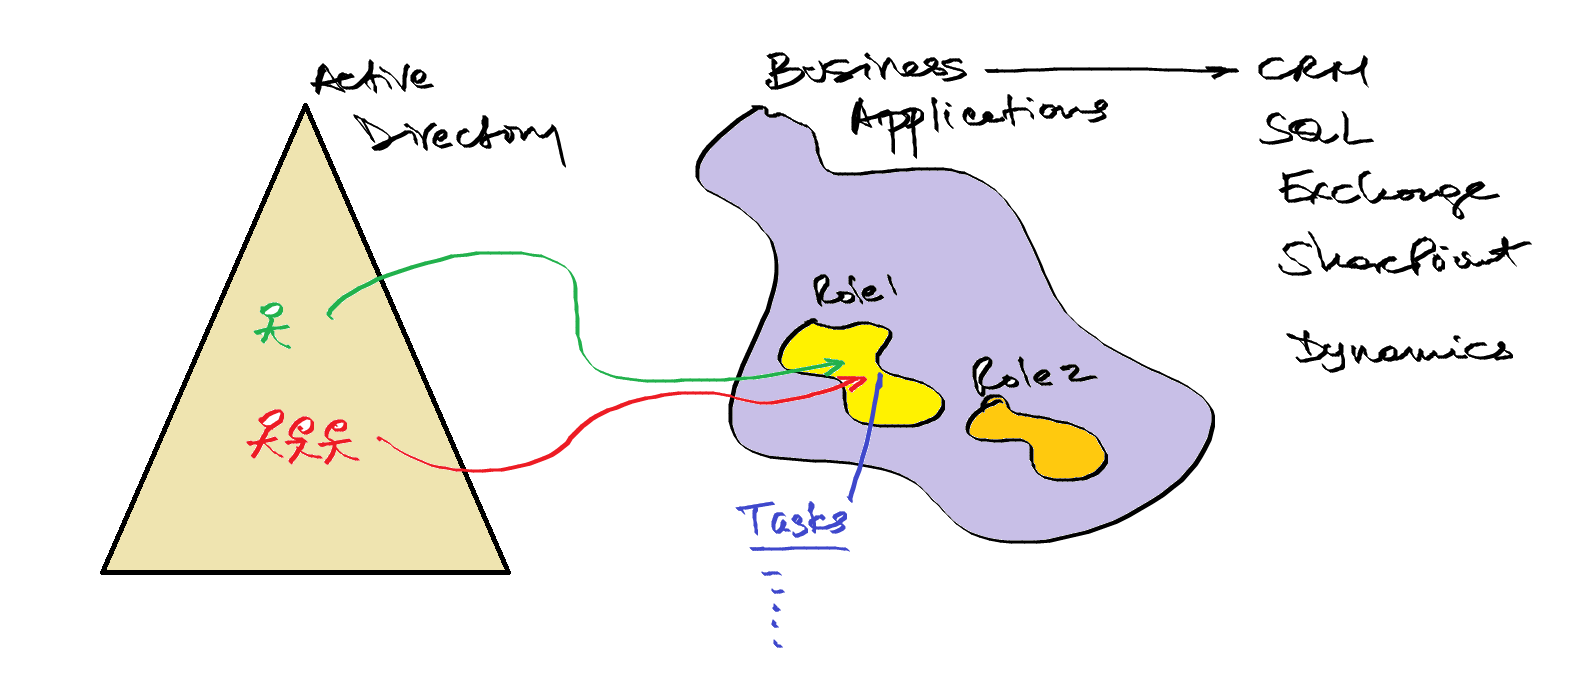 Active
Directory
Business
Applications
CRM
SQL
Exchange
SharePoint
Dynamics
Role1
Role2
Tasks